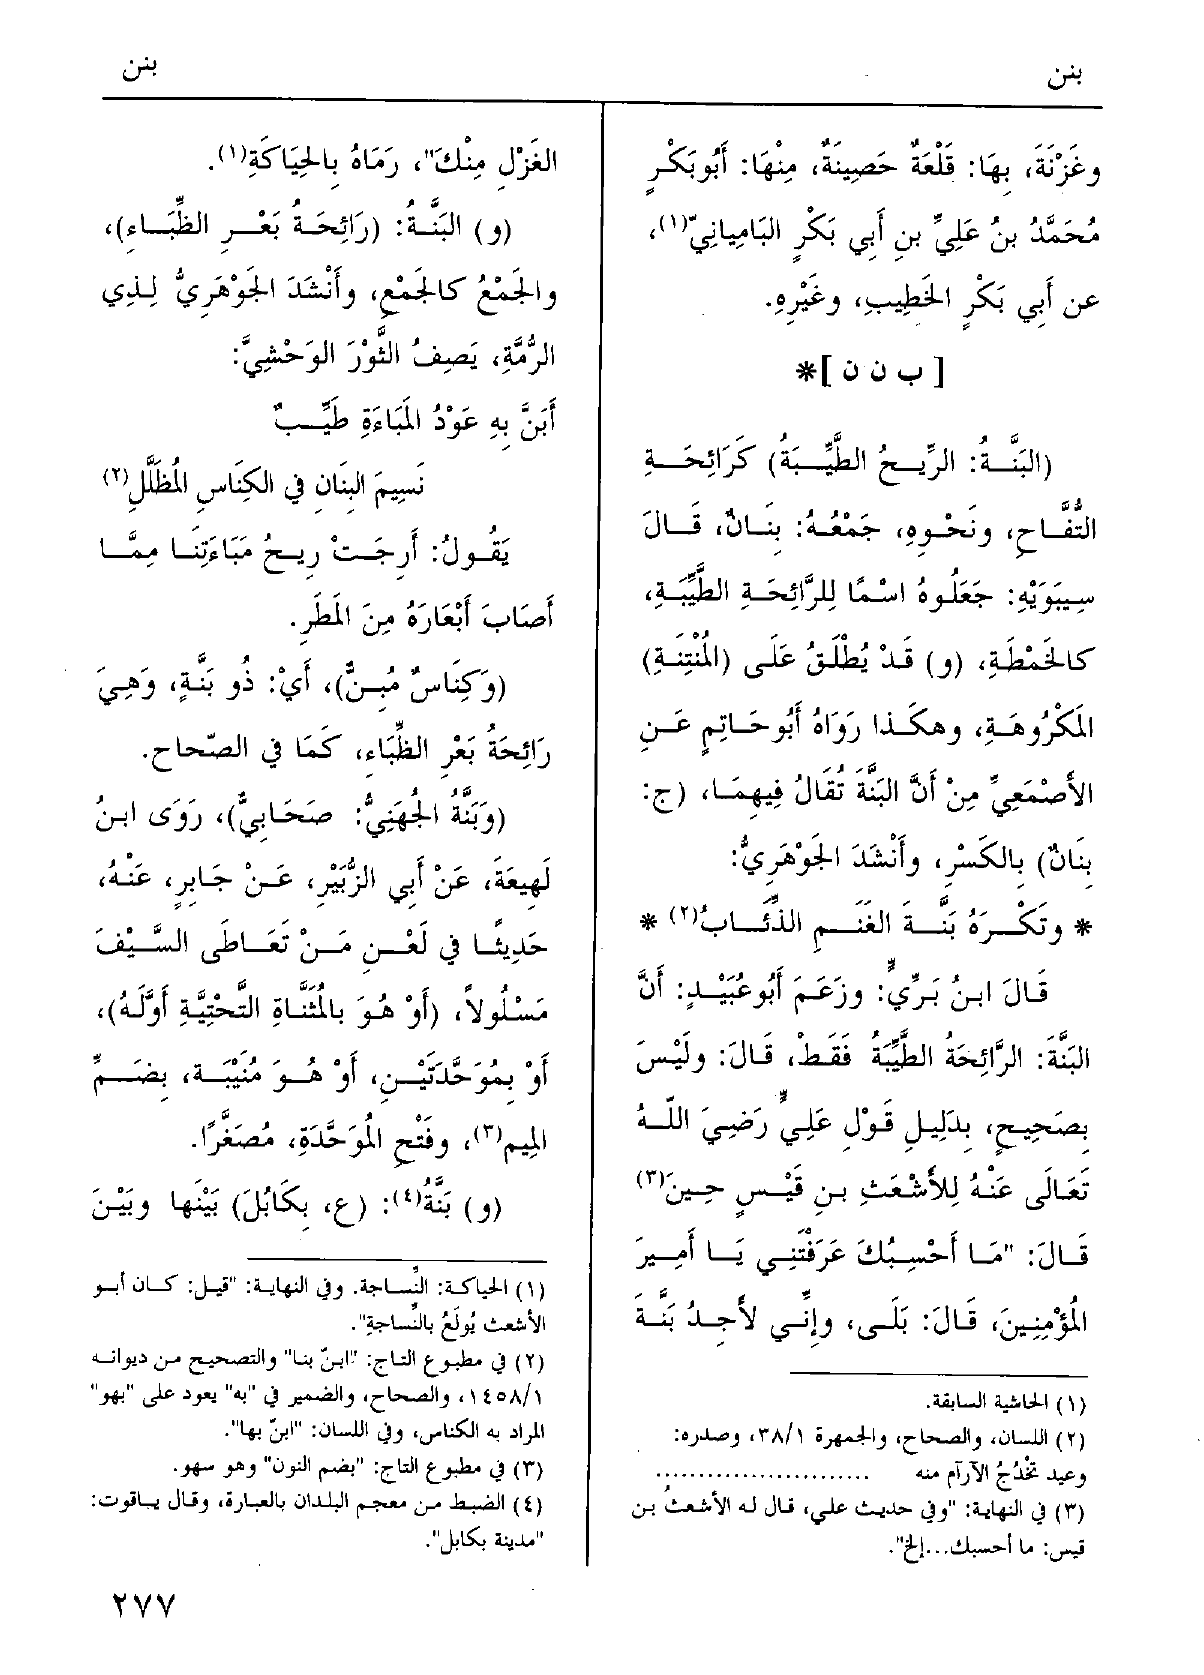 بنن
بنن
وغَزْنَةَ، بِهَا: قَلْعَةٌ حَصِينَةٌ، مِنْهَا: أَبُوبَكْرٍ
مُحَمَّدُ بنُ عَلِيِّ بنِ أَبي بَكْرٍ البَامِيانِيّ(١)،
عن أَبي بَكْرٍ الخَطِيبِ، وغَيْرِهِ.
[ ب ن ن ]*
(البَنَّةُ: الرِّيحُ الطَّيِّبَةُ) كَرَائِحَةِ
التُّفَّاحِ، ونَحْوِهِ، جَمْعُهُ: بِنَانٌ، قَالَ
سِيبَوَيْهِ: جَعَلُوهُ اسْمًا لِلرَّائِحَةِ الطَّيِّبَةِ،
كالخَمْطَةِ، (و) قَدْ يُطْلَقُ عَلَى (المُنْتِنَةِ)
المَكْرُوهَةِ، وهكَذا رَوَاهُ أَبُوحَاتِمٍ عَنِ
الأَصْمَعِيِّ مِنْ أَنَّ البَنَّةَ تُقَالُ فِيهِمَا، (ج:
بِنَانٌ) بِالكَسْرِ، وأَنْشَدَ الجَوْهَرِيُّ:
* وتَكْرَهُ بَنَّةَ الغَنَمِ الذِّئَابُ(٢) *
قَالَ ابنُ بَرِّيٍّ: وزَعَمَ أَبُوعُبَيْدٍ: أَنَّ
البَنَّةَ: الرَّائِحَةُ الطَّيِّبَةُ فَقَطْ، قَالَ: ولَيْسَ
بِصَحِيحٍ، بِدَلِيلِ قَوْلِ عَلِيٍّ رَضِيَ اللَّهُ
تَعَالَى عَنْهُ لِلأَشْعَثِ بنِ قَيْسٍ حِينَ(٣)
قَالَ: "مَا أَحْسِبُكَ عَرَفْتَنِي يَا أَمِيرَ
المُؤْمِنِينَ، قَالَ: بَلَى، وإِنِّي لأَجِدُ بَنَّةَ
(١) الحاشية السابقة.
(٢) اللسان، والصحاح، والجمهرة ٣٨/١، وصدره:
وعيد تخْدُجُ الآرآم منه ........................
(٣) في النهاية: "وفي حديث علي، قال له الأشعثُ بن
قيس: ما أحسبك...إلخ".
الغَزْلِ مِنْكَ"، رَمَاهُ بِالحِيَاكَةِ(١).
(و) البَنَّةُ: (رَائِحَةُ بَعْرِ الظِّبَاءِ)،
والجَمْعُ كالجَمْعِ، وأَنْشَدَ الجَوْهَرِيُّ لِذِي
الرُّمَّةِ، يَصِفُ الثَّوْرَ الوَحْشِيَّ:
أَبَنَّ بِهِ عَوْدُ المَبَاءَةِ طَيِّبٌ
نَسِيمَ البِنَانِ في الكِنَاسِ المُظَلَّلِ(٢)
يَقُولُ: أَرِجَتْ رِيحُ مَبَاءَتِنَا مِمَّا
أَصَابَ أَبْعَارَهُ مِنَ المَطَرِ.
(وَكِنَاسٌ مُبِنٌّ)، أَيْ: ذُو بَنَّةٍ، وَهِيَ
رَائِحَةُ بَعْرِ الظِّبَاءِ، كَمَا في الصّحاحِ.
(وَبَنَّةُ الجُهَنِيُّ: صَحَابِيٌّ)، رَوَى ابنُ
لَهِيعَةَ، عَنْ أَبي الزُّبَيْرِ، عَنْ جَابِرٍ، عَنْهُ،
حَدِيثًا في لَعْنِ مَنْ تَعَاطَى السَّيْفَ
مَسْلُولاً، (أَوْ هُوَ بالمُثَنَّاةِ التَّحْتِيَّةِ أَوَّلَهُ)،
أَوْ بِمُوَحَّدَتَيْنِ، أَوْ هُوَ مُنَيْبَة، بِضَمِّ
المِيمِ(٣)، وفَتْحِ المُوَحَّدَةِ، مُصَغَّرًا.
(و) بَنَّةُ(٤): (ع، بِكَابُلَ) بَيْنَها وبَيْنَ
(١) الحياكة: النِّساجة. وفي النهاية: "قيل: كان أبو
الأشعث يُولَعُ بالنِّساجةِ".
(٢) في مطبوع التاج: "ابنّ بنا" والتصحيح من ديوانه
١٤٥٨/١، والصحاح، والضمير في "به" يعود على "بهو"
المراد به الكناس، وفي اللسان: "ابنّ بها".
(٣) في مطبوع التاج: "بضم النون" وهو سهو.
(٤) الضبط من معجم البلدان بالعبارة، وقال ياقوت:
"مدينة بكابل".
٢٧٧